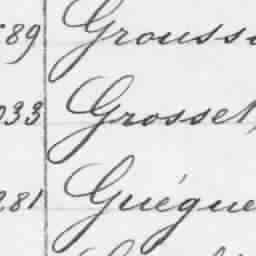 89 Grouss
033 Grosset,
281 Guégue